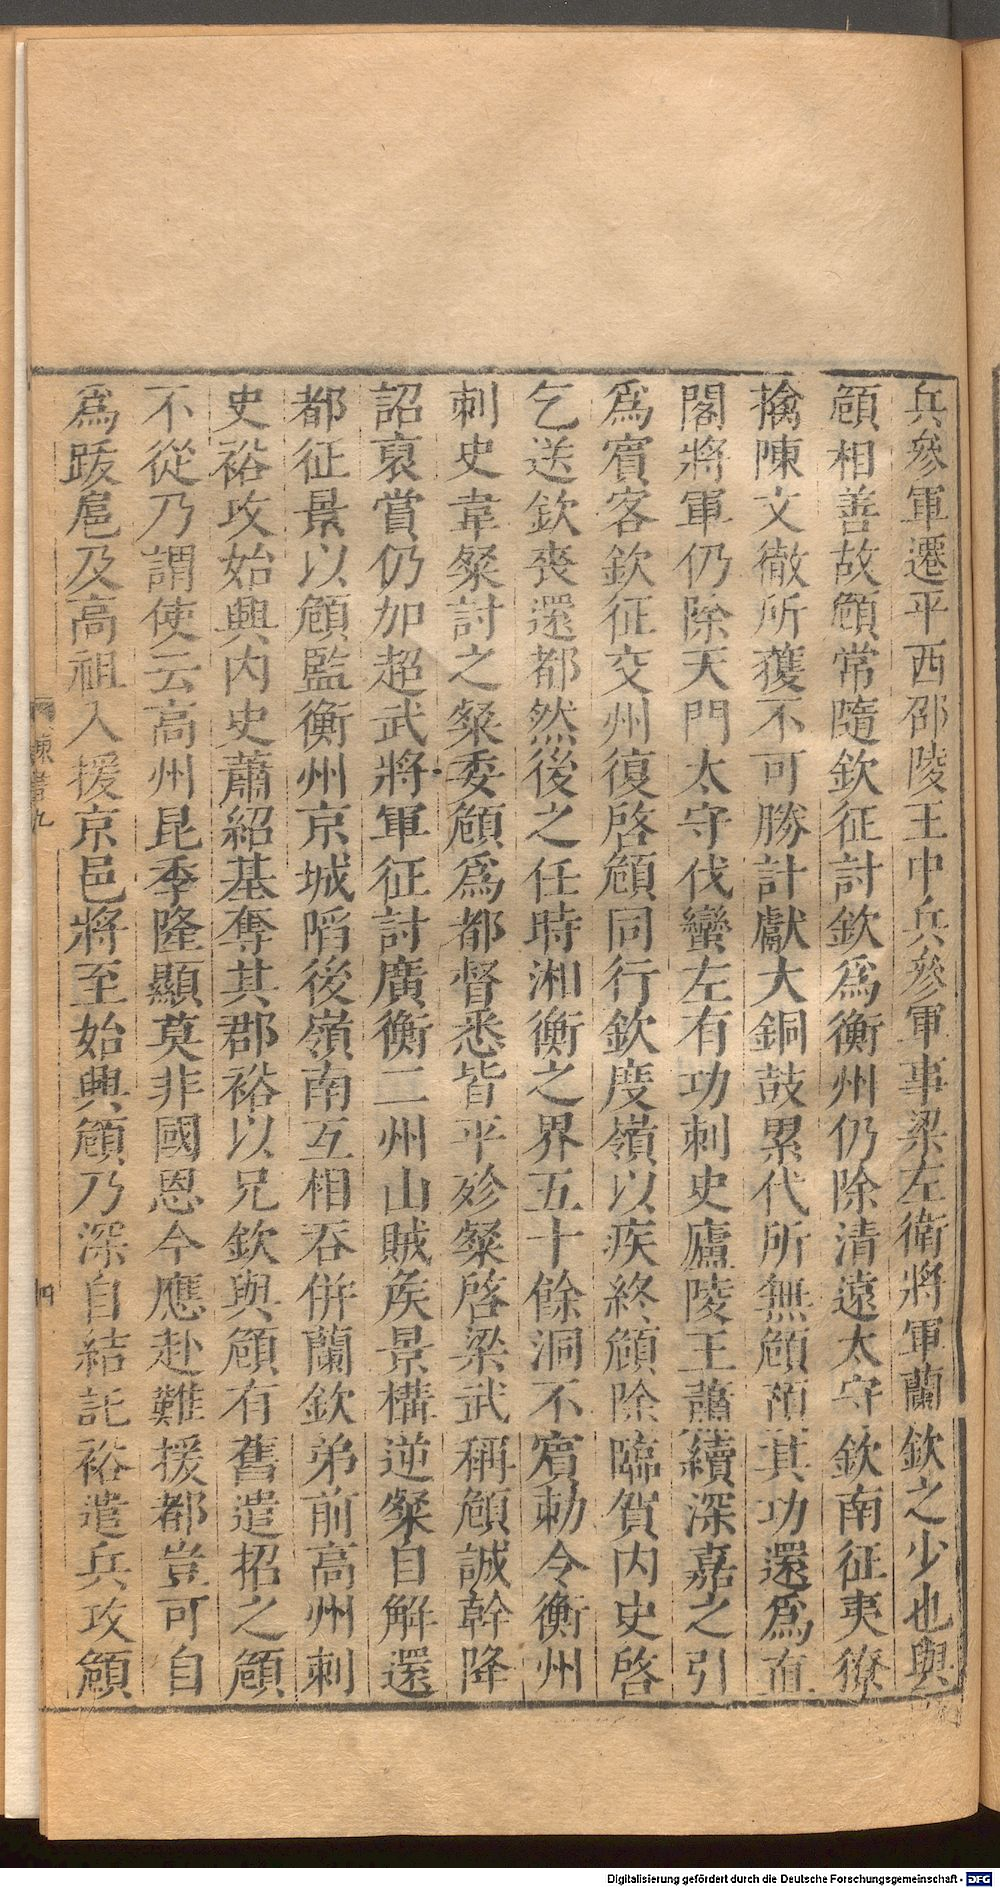 兵參軍遷平西邵陵王中兵參軍事梁左衛將軍蘭欽之少也與
頠相善故頠常隨欽征討欽爲衡州仍除清遠太守欽南征夷獠
擒陳文徹所獲不可勝計獻大銅鼓累代所無頠預其功還爲直
閣將軍仍除天門太守伐蠻左有功刺史廬陵王蕭續深嘉之引
爲賓客欽征交州復啓頠同行欽度嶺以疾終頠除臨賀內史啓
乞送欽喪還都然後之任時湘衡之界五十餘洞不賓勅令衡州
刺史韋粲討之粲委頠爲都督悉皆平殄粲啓梁武稱頠誠幹降
詔襃賞仍加超武將軍征討廣衡二州山賊矦景構逆粲自解還
都征景以頠監衡州京城陷後嶺南互相吞併蘭欽弟前高州刺
史裕攻始興內史蕭紹基奪其郡裕以兄欽與頠有舊遣招之頠
不從乃謂使云高州昆季隆顯莫非國恩今應赴難援都豈可自
爲跋扈及高祖入援京邑將至始興頠乃深自結託裕遣兵攻頠
陳書九
四
Digitalisierung gefördert durch die Deutsche Forschungsgemeinschaft - DFG